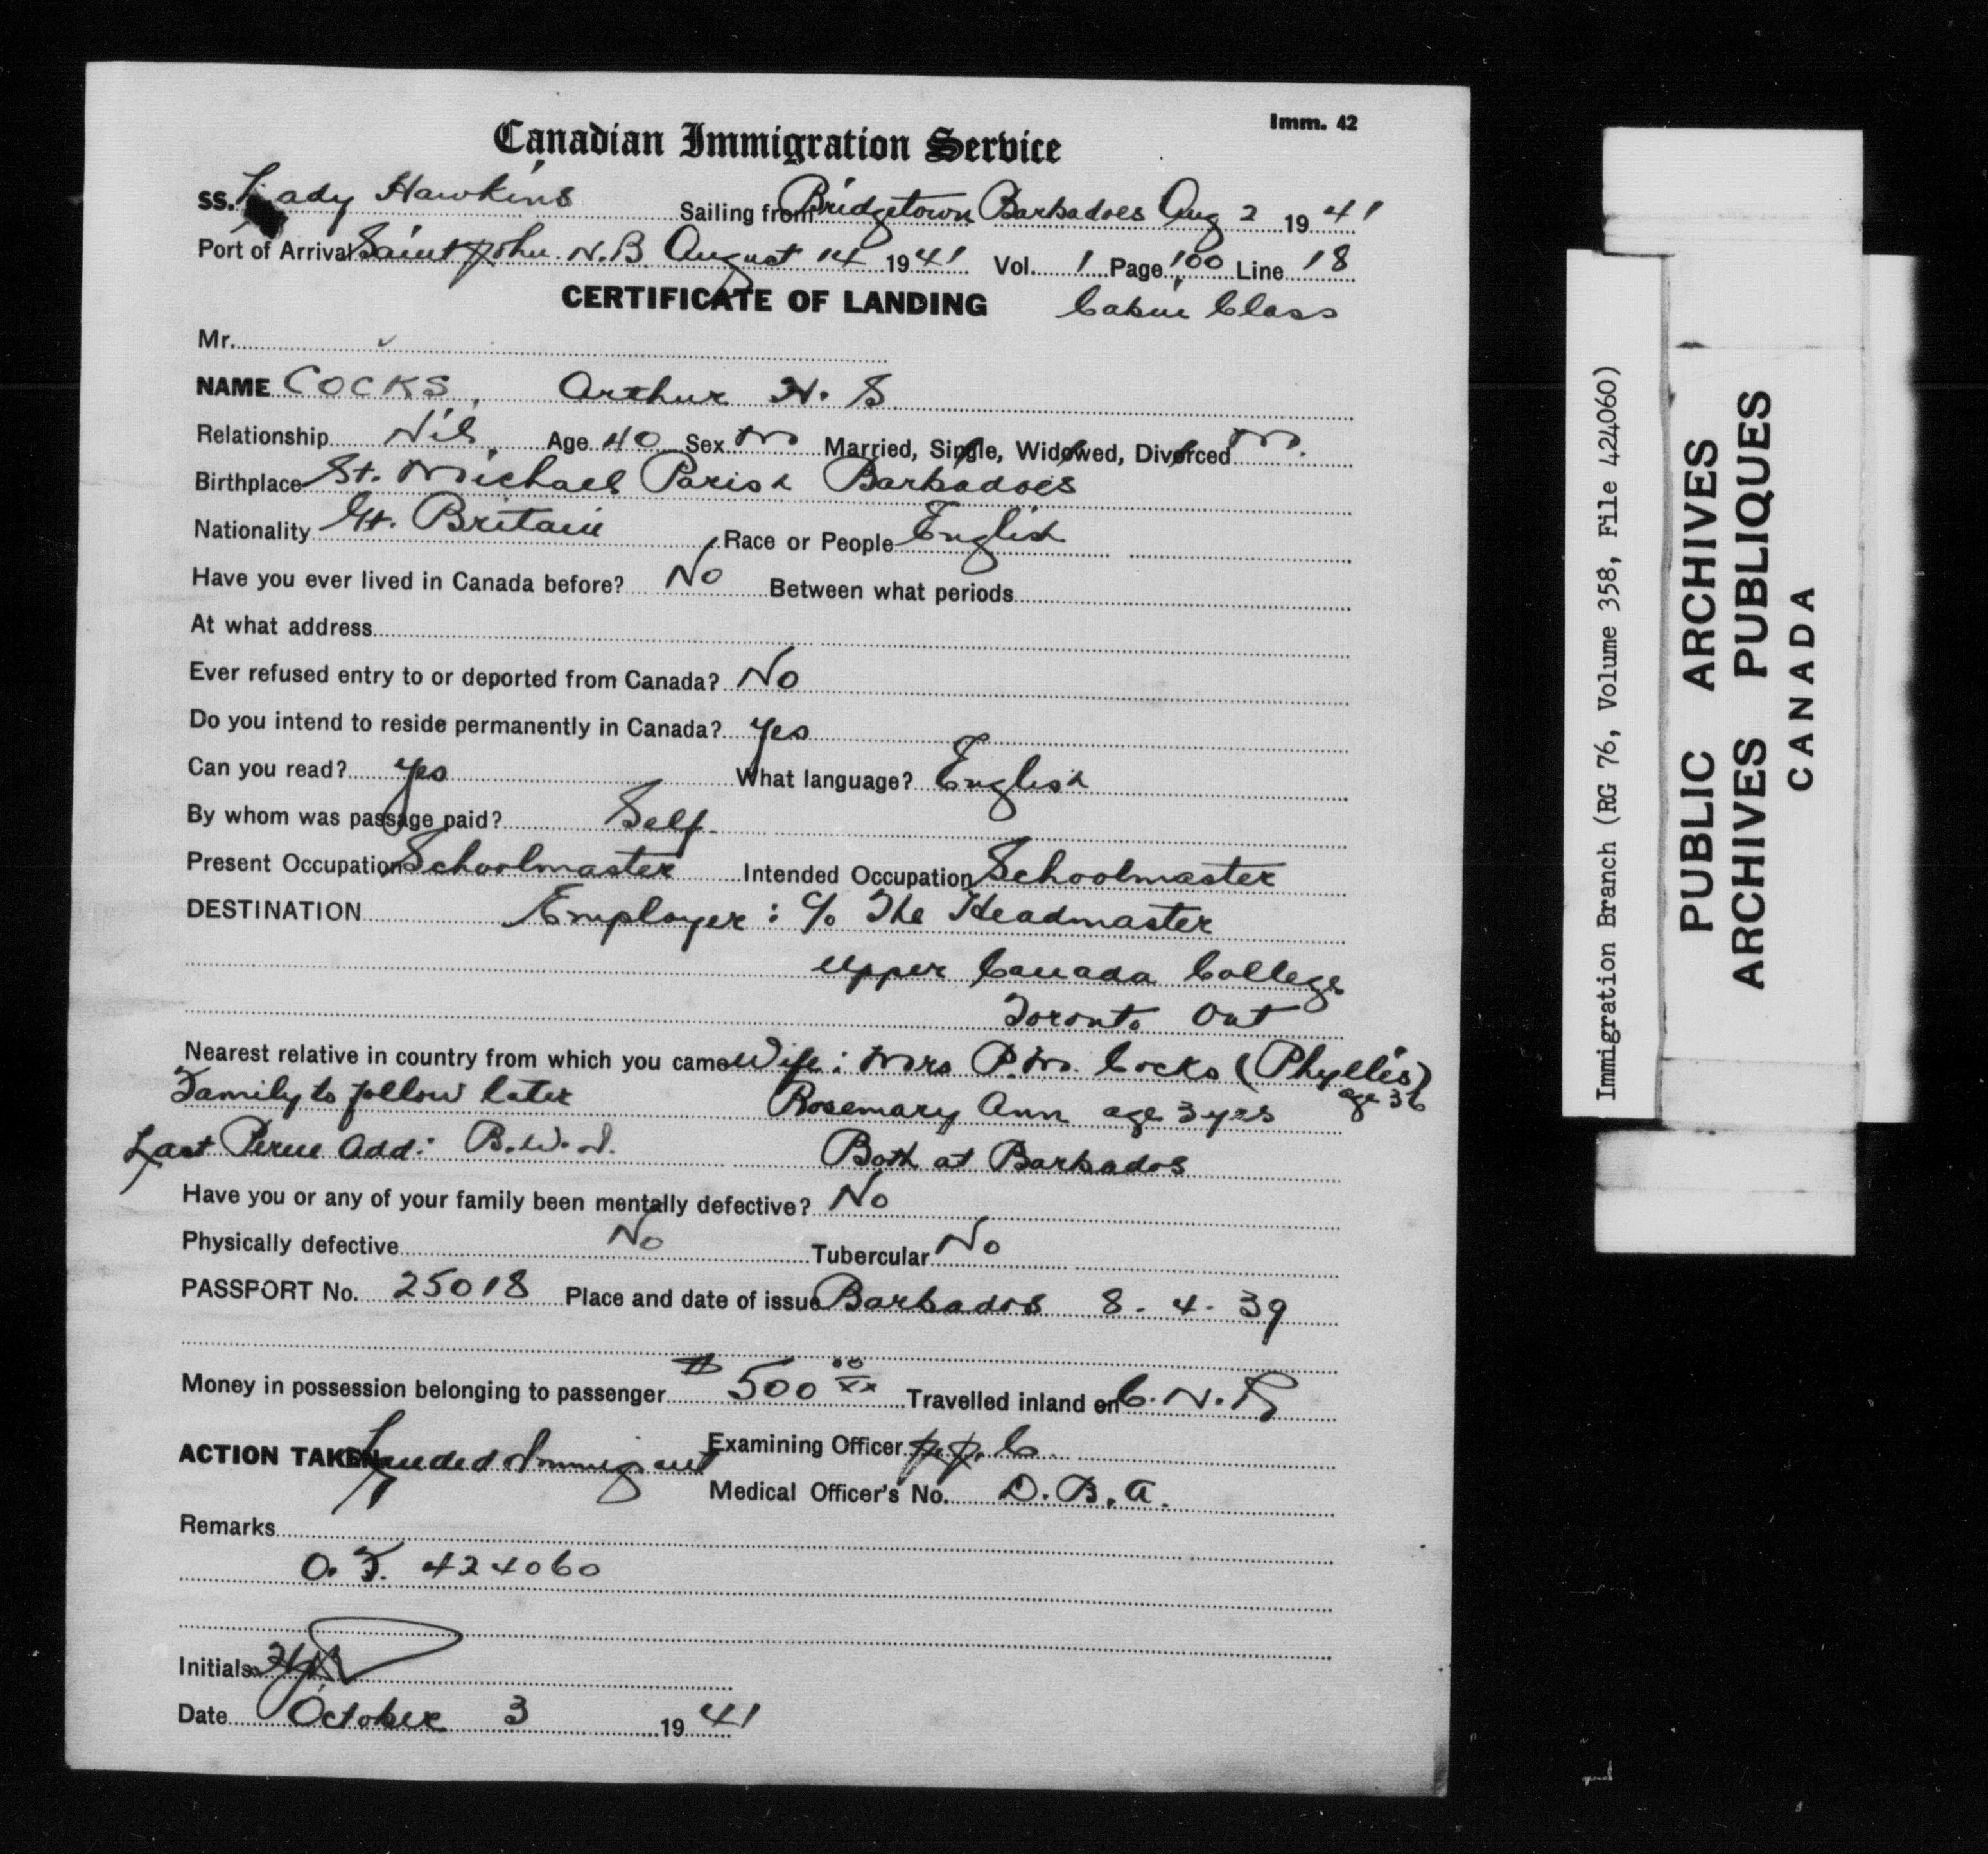 Imm. 42
Canadian Immigration Service
SS. Lady Hawkins Sailing from Bridgetown Barbadoes Aug 2 1941
Port of Arrival Saint John. N.B. August 14 1941 Vol. 1 Page 100 Line 18
CERTIFICATE OF LANDING Cabin Class
Mr.
NAME COCKS, Arthur H. S.
Relationship Nil Age 40 Sex M Married, Single, Widowed, Divorced M.
Birthplace St. Michael Parish Barbadoes
Nationality Gt. Britain Race or People English
Have you ever lived in Canada before? No Between what periods
At what address
Ever refused entry to or deported from Canada? No
Do you intend to reside permanently in Canada? Yes
Can you read? Yes What language? English
By whom was passage paid? Self.
Present Occupation Schoolmaster Intended Occupation Schoolmaster
DESTINATION Employer: c/o The Headmaster
Upper Canada College
Toronto Ont
Nearest relative in country from which you came Wife: Mrs P.M. Cocks (Phyllis)
Family to follow later Rosemary Ann age 3 yrs age 36
Last Perm Add: B.W.I. Both at Barbados
Have you or any of your family been mentally defective? No
Physically defective No Tubercular No
PASSPORT No. 25018 Place and date of issue Barbados 8-4-39
Money in possession belonging to passenger $500 00/xx Travelled inland on C.N.R
ACTION TAKEN Landed Immigrant Examining Officer
Medical Officer's No. D.B.A.
Remarks
O.F. 424060
Initials
Date October 3 1941
Immigration Branch (RG 76, Volume 358, File 424060)
PUBLIC ARCHIVES
ARCHIVES PUBLIQUES
CANADA